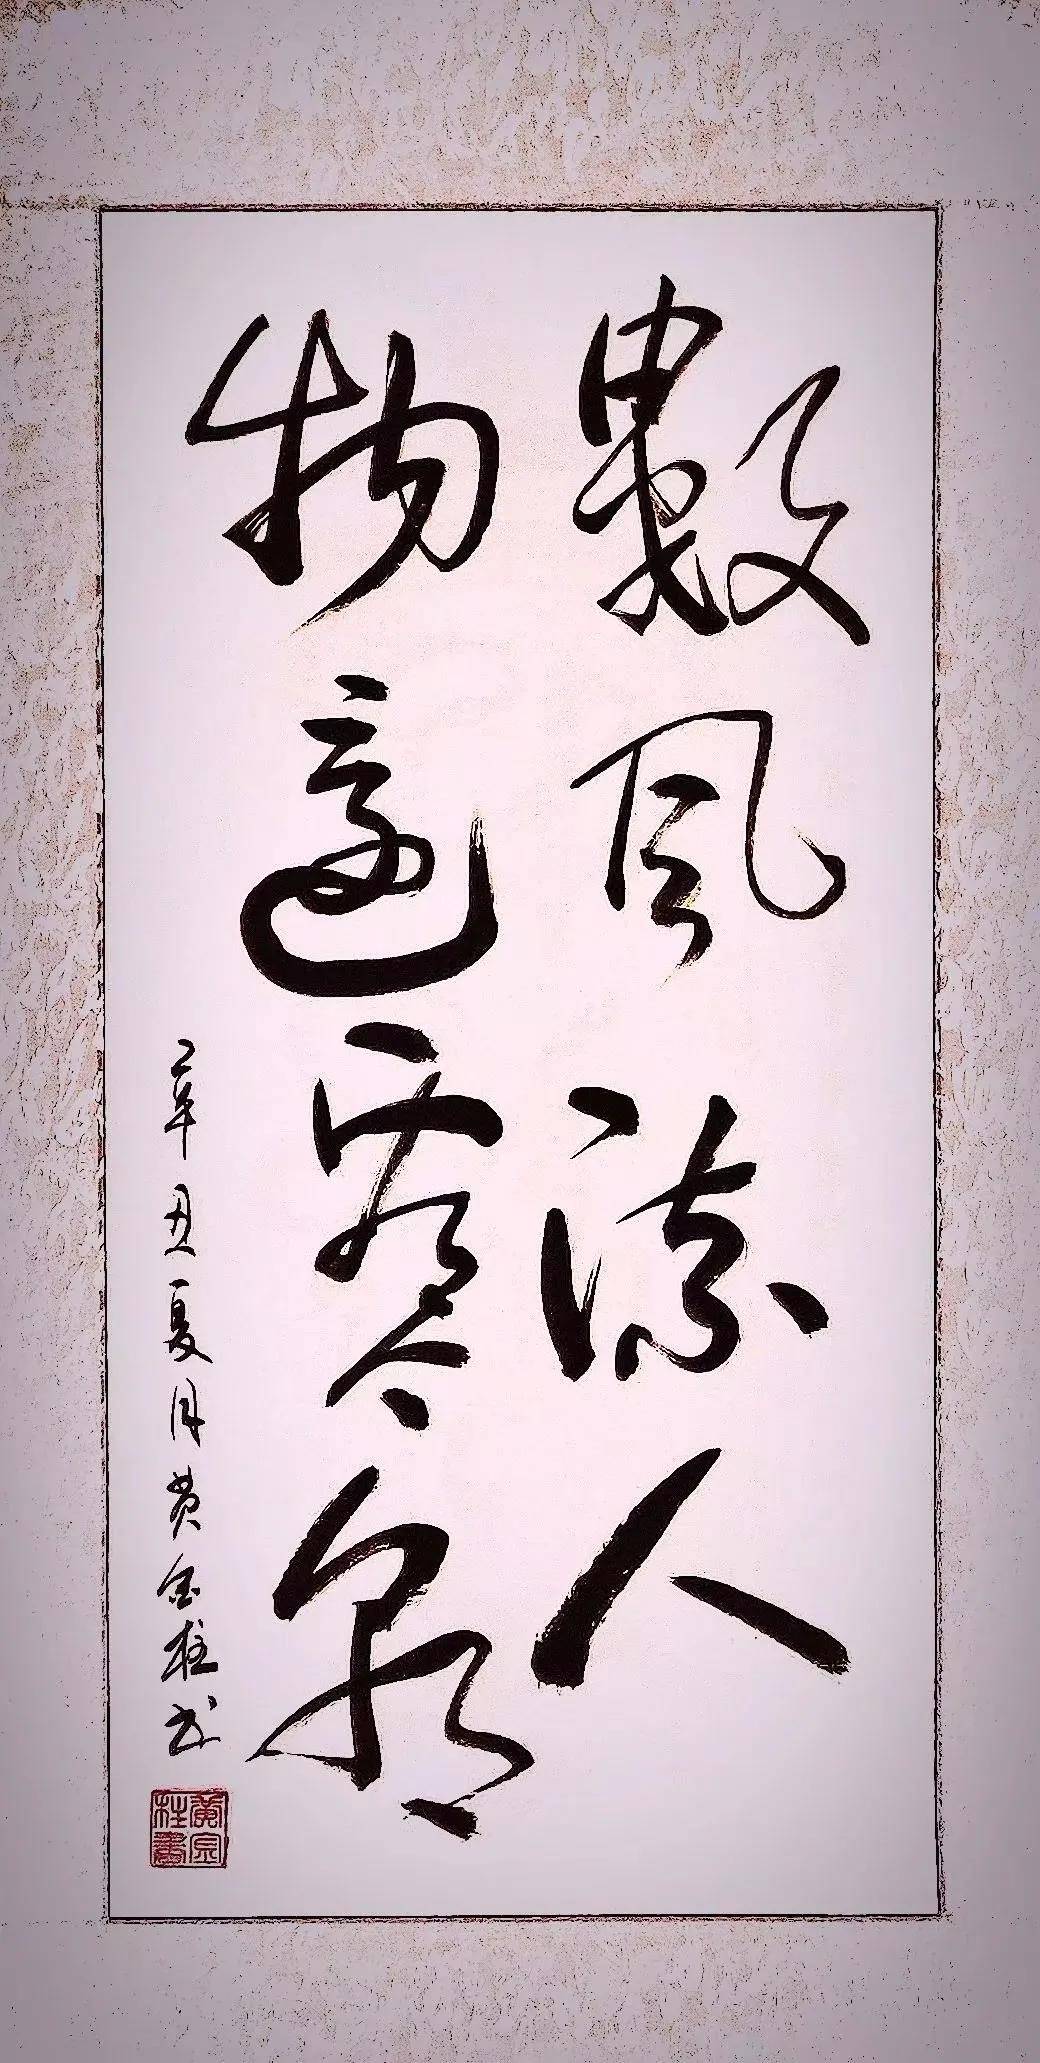 數風流人
物還看今朝
辛丑夏月黄金柱书